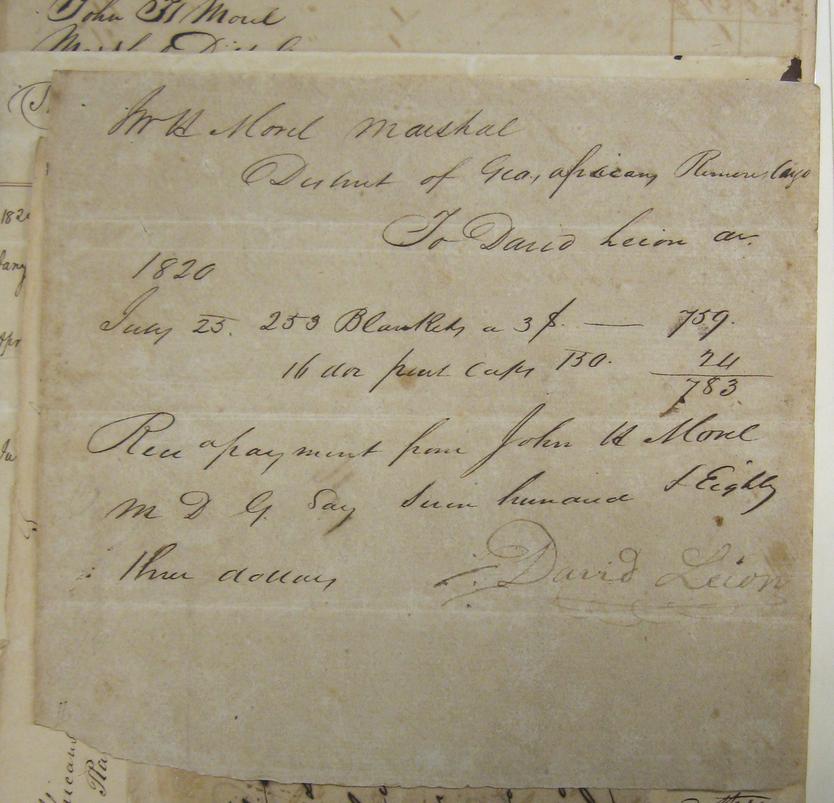 John H Morel
Jn H Morel Marshal
District of Geo, africans
To David Leion Dr.
1820
July 25. 253 Blankets a 3 $. — 759.
16 doz Caps 150. 24
783
Recd payment from John H Morel
M D G. Say Seven hundred & Eighty
three dollars
David Leion